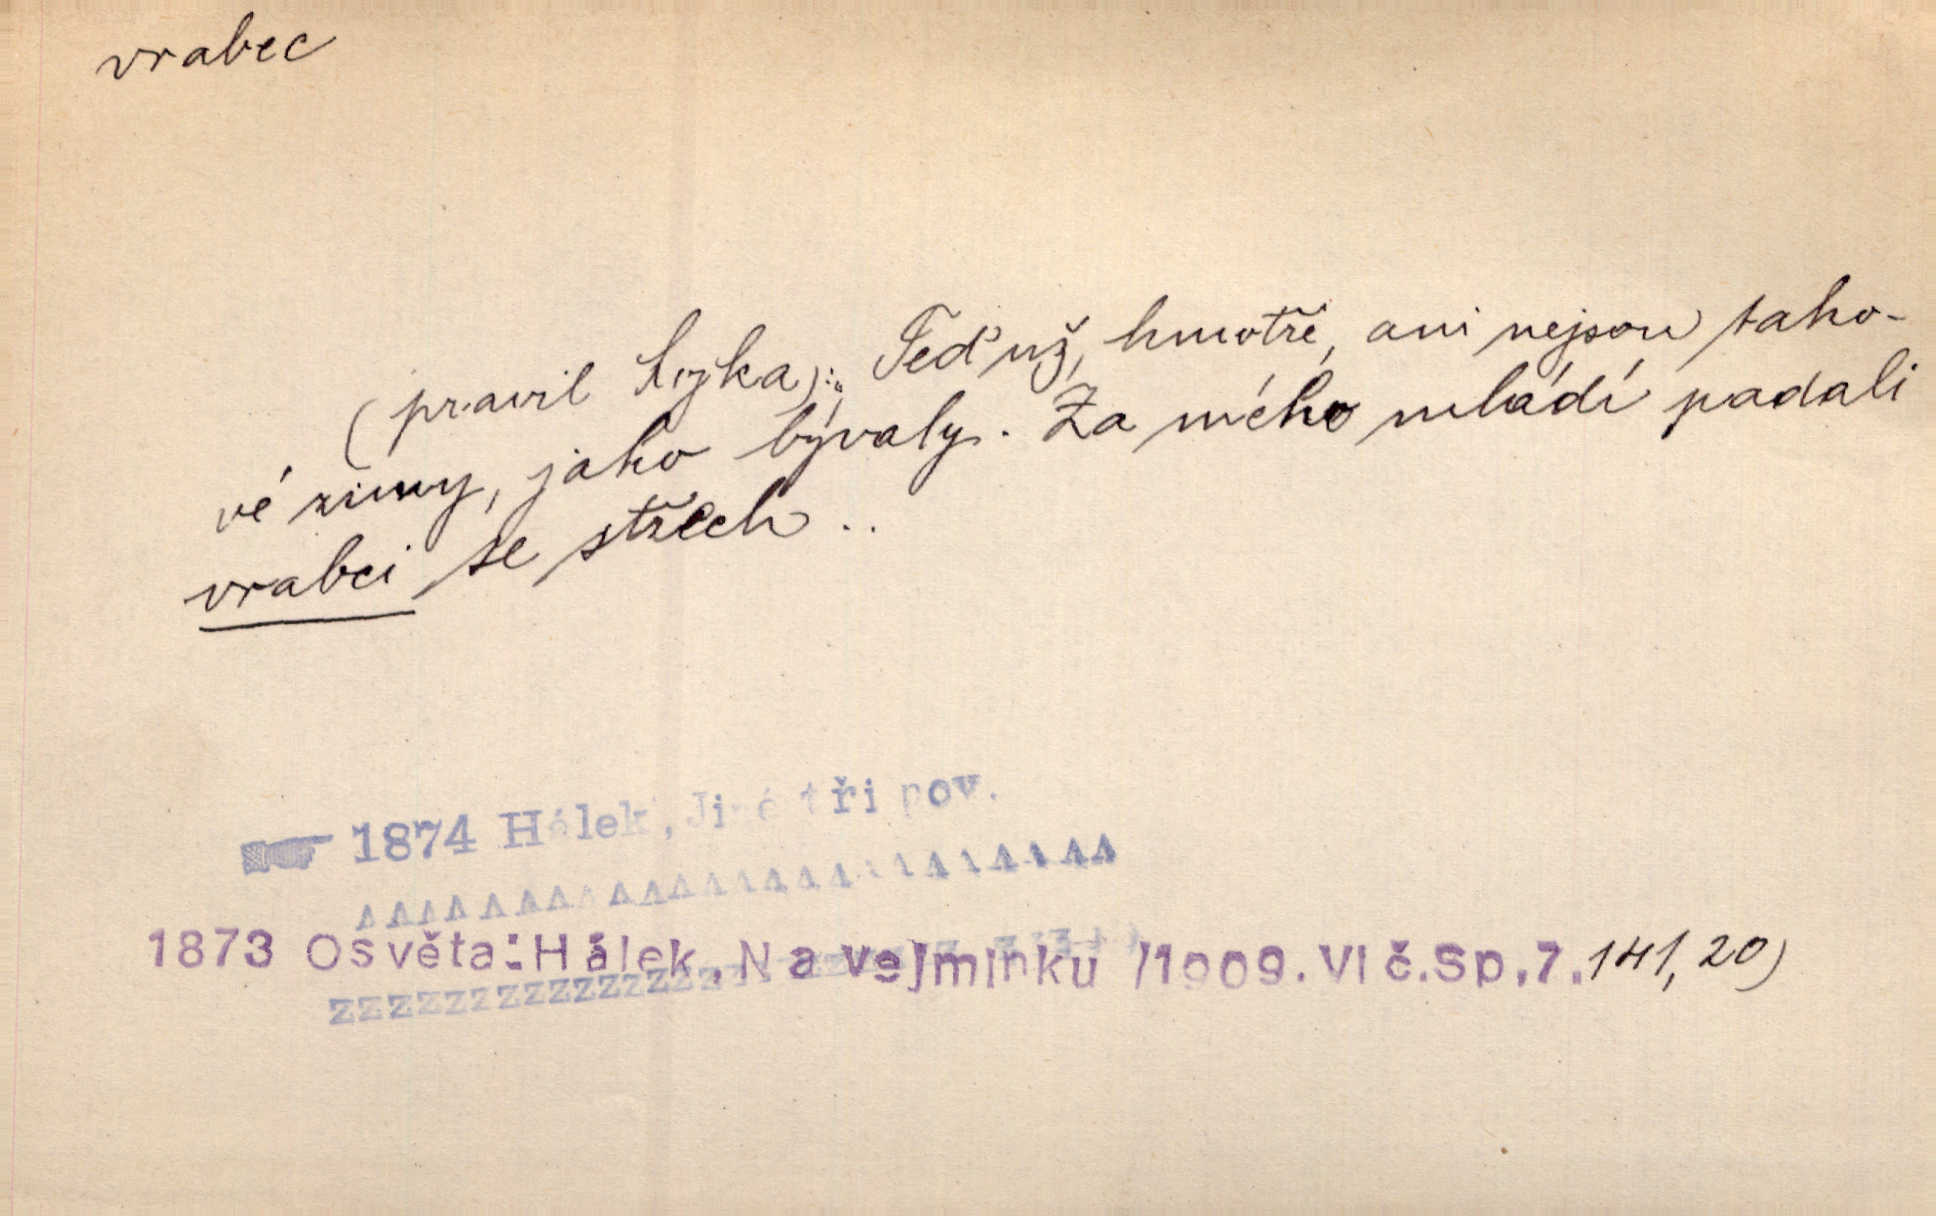 vrabec
(pravil Lojka): „Teď už, kmotře, ani nejsou tako-
vé zimy, jako bývaly. Za mého mládí padali
vrabci se střech ..
1874 Hálek, Jiné tři pov.
1873 Osvěta: Hálek, Na vejminku /1909. Vlč. Sp. 7. 141, 20)